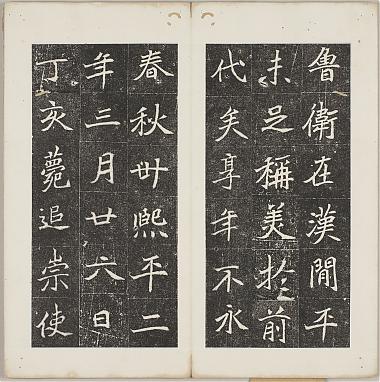 魯衛在漢閒平
未足稱美於前
代矣享年不永
春秋卅熙平二
年三月廿六日
丁亥薨追崇使